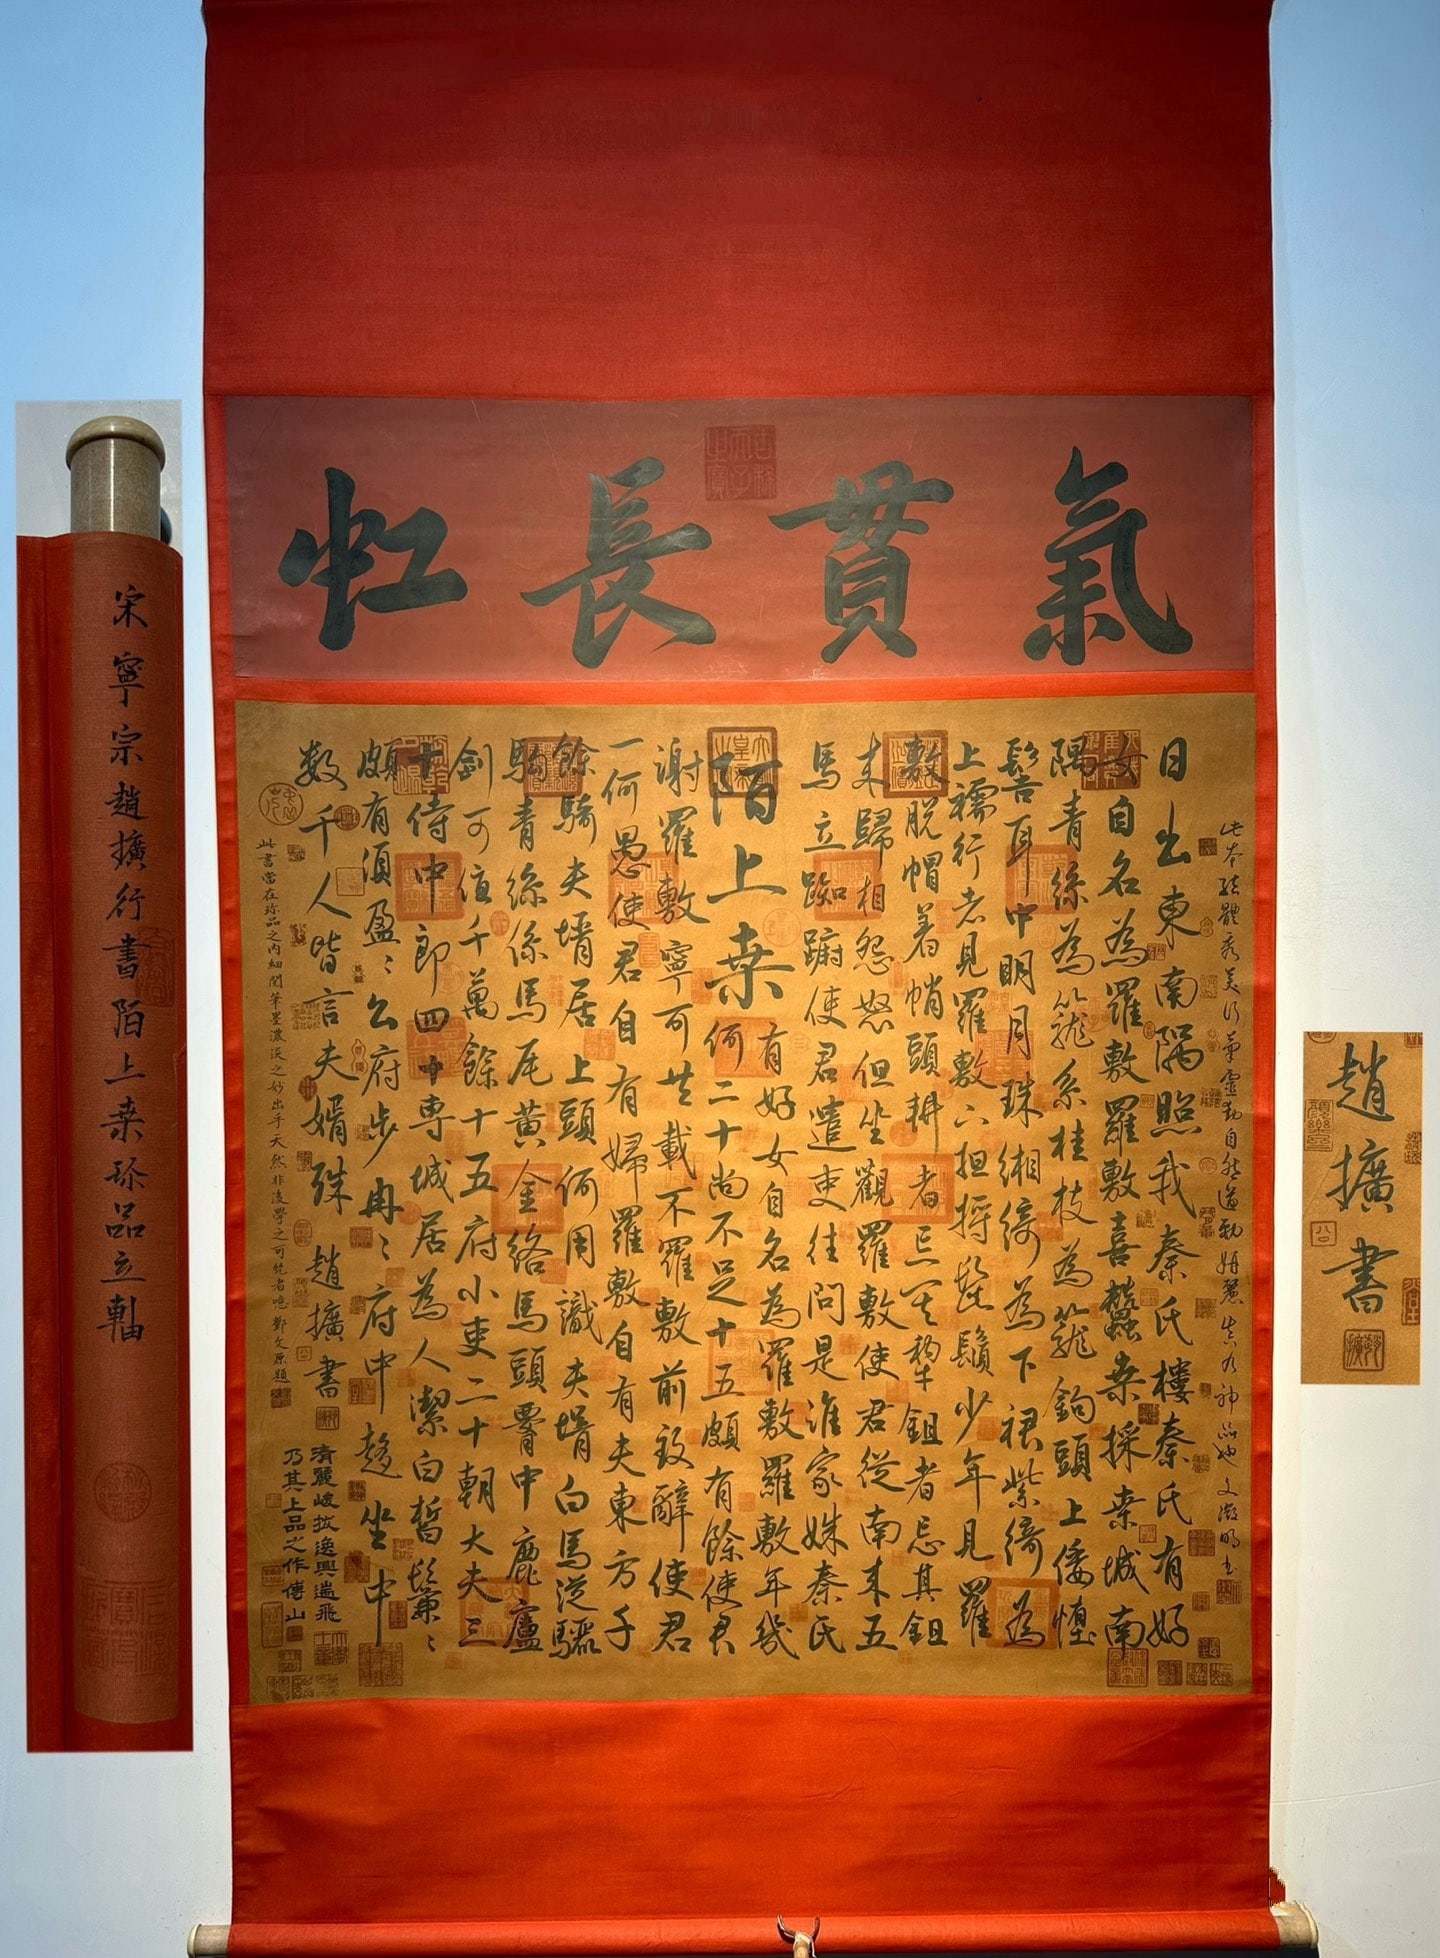 氣貫長虹
日出東南隅照我秦氏樓秦氏有好
女自名為羅敷羅敷喜蠶桑採桑城南
隅青絲為籠系桂枝為籠鉤頭上倭墮
髻耳中明月珠緗綺為下裙紫綺為
上襦行者見羅敷下担捋髭鬚少年見羅
敷脫帽著帩頭耕者忘其犁鉏者忘其鉏
來歸相怨怒但坐觀羅敷使君從南來五
馬立踟躕使君遣吏往問是誰家姝秦氏
有好女自名為羅敷羅敷年幾
陌上桒
何二十尚不足十五頗有餘使君
謝羅敷寧可共載不羅敷前致辭使君
一何愚使君自有婦羅敷自有夫東方千
餘騎夫壻居上頭何用識夫壻白馬從驪
駒青絲係馬尾黃金絡馬頭腰中鹿盧
劍可值千萬餘十五府小吏二十朝大夫三
十侍中郎四十專城居為人潔白皙鬑〻
頗有須盈〻公府步冉〻府中趨坐中
數千人皆言夫婿殊 趙擴書
此本結體秀美行筆靈動自然遒勁妍麗真乃神品也文徵明書
此書當在珍品之內細閱筆墨濃淡之妙出乎天然非淺學之可 者噫鄭文原題
清麗峻拔逸興遄飛
乃其上品之作傅山
宋寧宗趙擴行書陌上桒珍品立軸
趙擴書